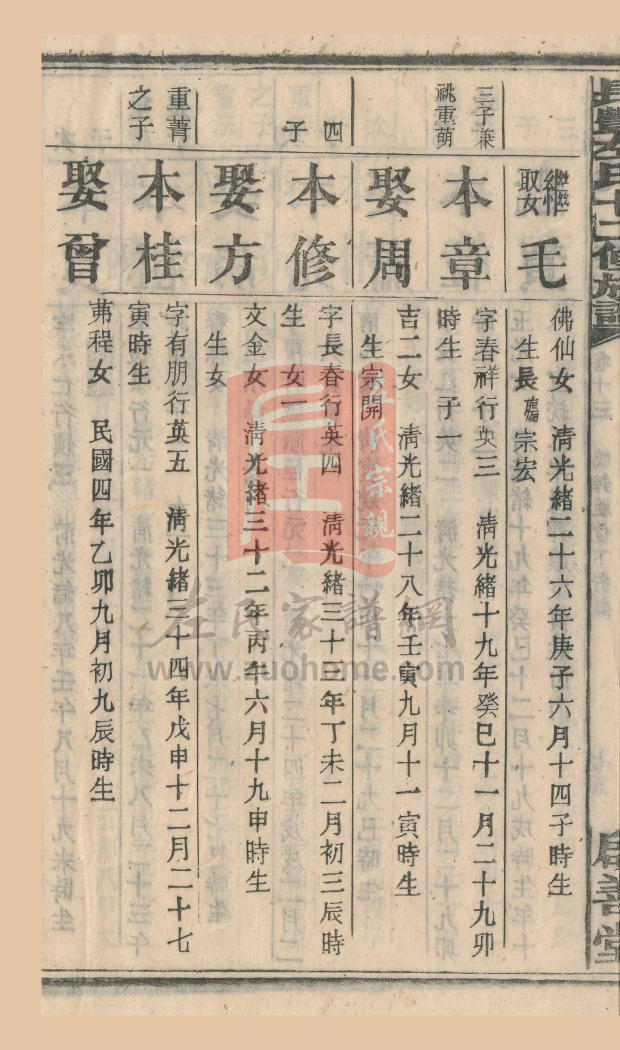 繼娶毛
佛仙女 清光緒二十六年庚子六月十四子時生
生長殤宗宏
三子兼祧重萌
本章
字春祥行英三 清光緒十九年癸巳十一月二十九卯
時生 子一
娶周
吉二女 清光緒二十八年壬寅九月十一寅時生
生宗開
四子
本修
字長春行英四 清光緒三十三年丁未二月初三辰時
生 女一
娶方
文金女 清光緒三十二年丙午六月十九申時生
生女
重菁之子
本桂
字有朋行英五 清光緒三十四年戊申十二月二十七
寅時生
娶曾
茀程女 民國四年乙卯九月初九辰時生
左氏家譜網
www.zuohome.com
左氏宗親